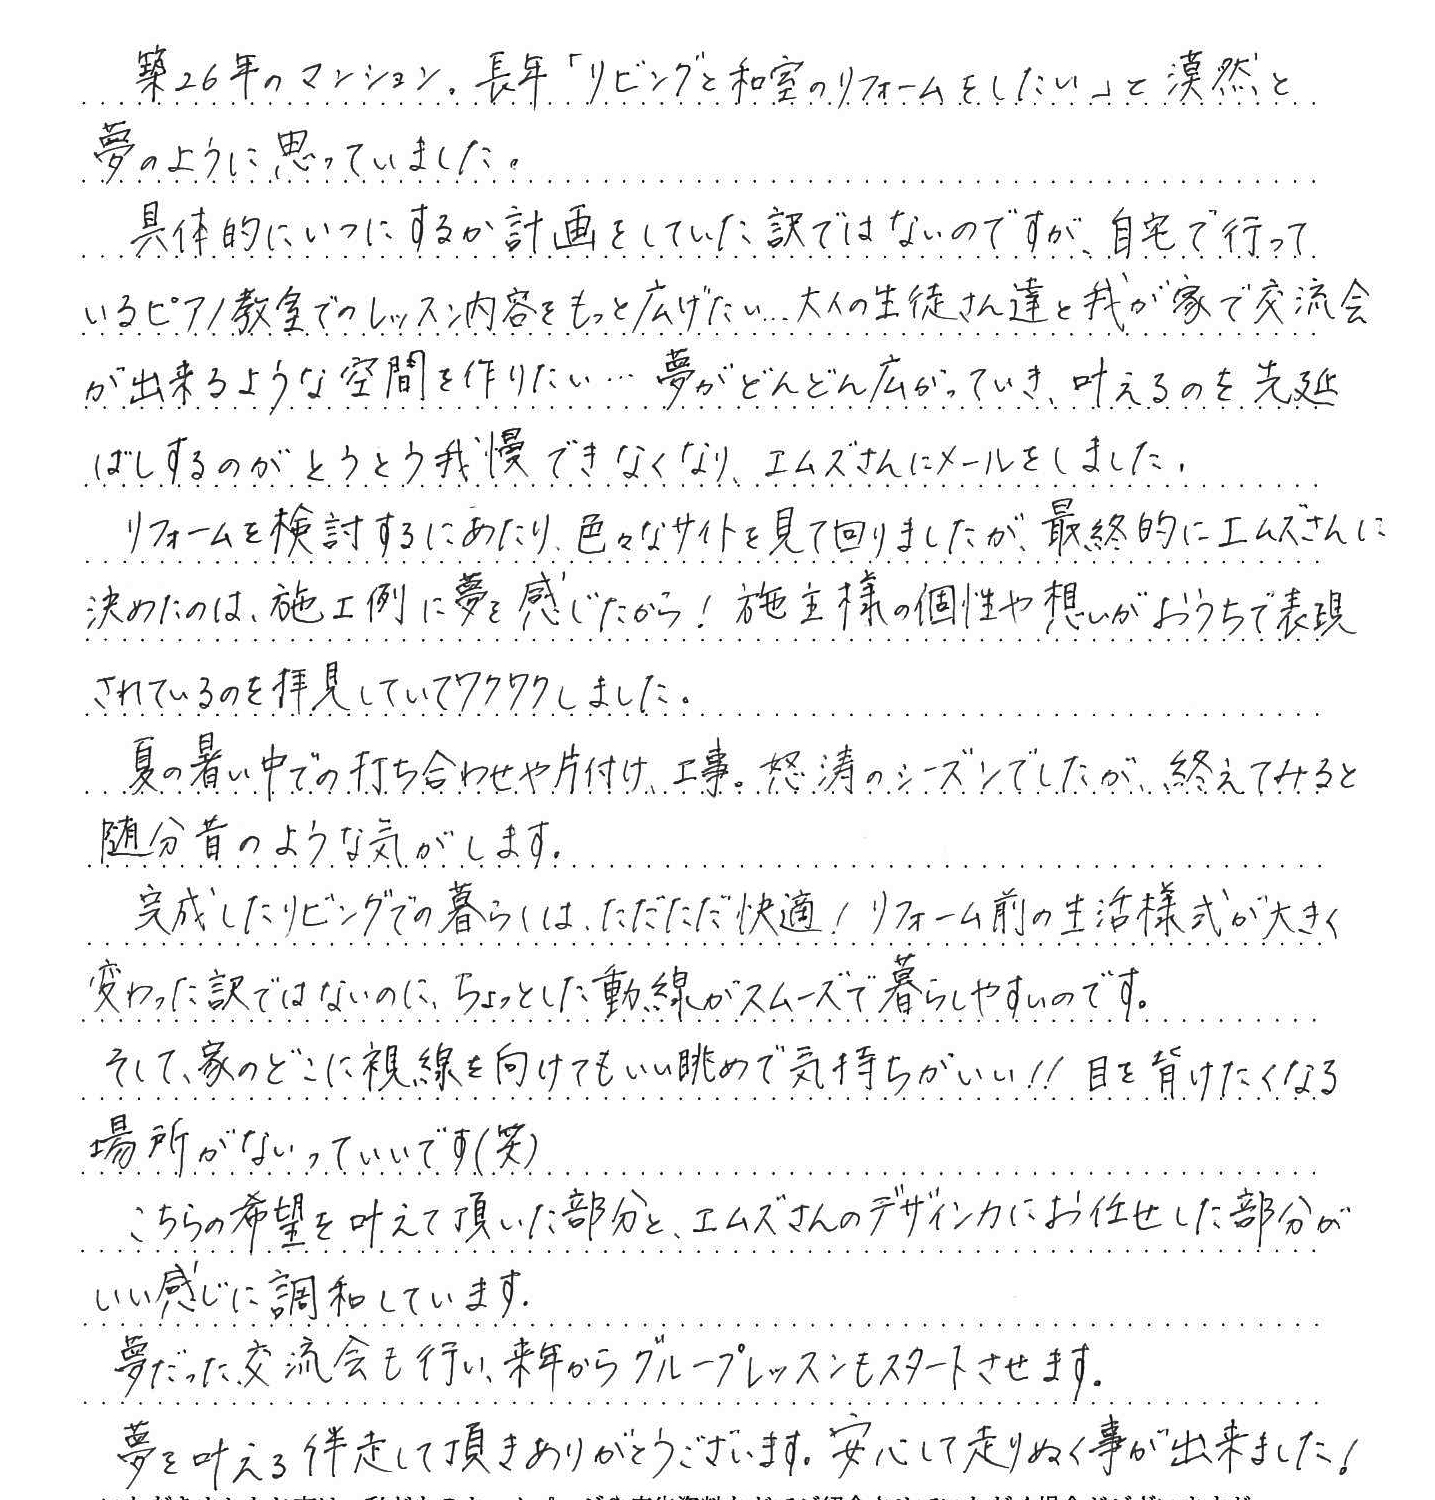 築26年のマンション。長年「リビングと和室のリフォームをしたい」と漠然と
夢のように思っていました。
具体的にいつにするか計画をしていた訳ではないのですが、自宅で行って
いるピアノ教室でのレッスン内容をもっと広げたい…大人の生徒さん達と我が家で交流会
が出来るような空間を作りたい…夢がどんどん広がっていき、叶えるのを先延
ばしするのがとうとう我慢できなくなり、エムズさんにメールをしました。
リフォームを検討するにあたり、色々なサイトを見て回りましたが、最終的にエムズさんに
決めたのは、施工例に夢を感じたから！施主様の個性や想いがおうちで表現
されているのを拝見していてワクワクしました。
夏の暑い中での打ち合わせや片付け、工事。怒涛のシーズンでしたが、終えてみると
随分昔のような気がします。
完成したリビングでの暮らしは、ただただ快適！リフォーム前の生活様式が大きく
変わった訳ではないのに、ちょっとした動線がスムーズで暮らしやすいのです。
そして、家のどこに視線を向けてもいい眺めで気持ちがいい！！目を背けたくなる
場所がないっていいです(笑)
こちらの希望を叶えて頂いた部分と、エムズさんのデザイン力にお任せした部分が
いい感じに調和しています。
夢だった交流会も行い、来年からグループレッスンもスタートさせます。
夢を叶える伴走して頂きありがとうございます。安心して走りぬく事が出来ました！